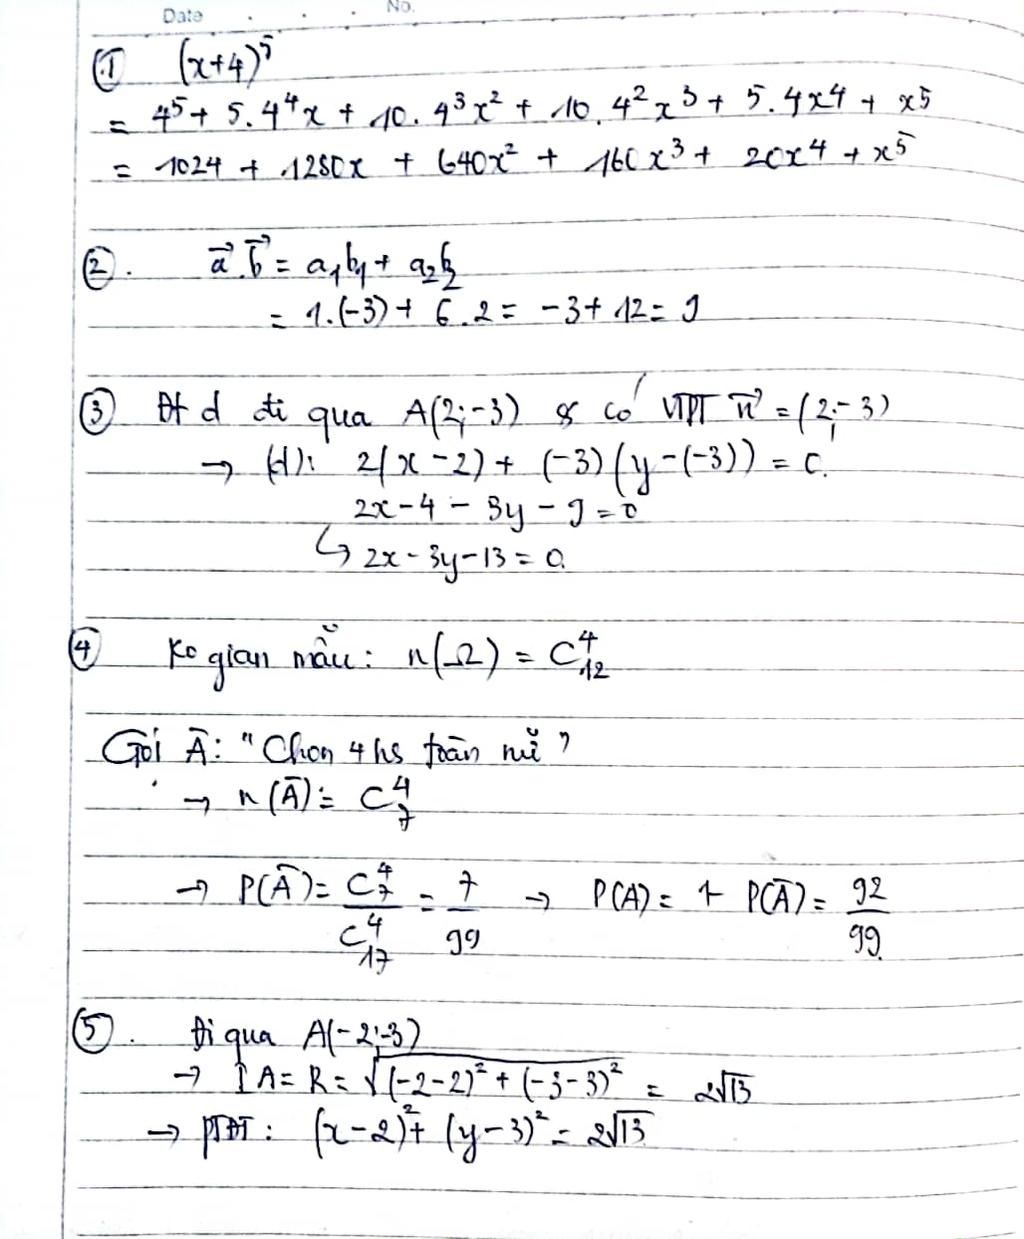 Date No.
① (x+4)⁵
= 4⁵ + 5.4⁴x + 10.4³x² + 10.4²x³ + 5.4x⁴ + x⁵
= 1024 + 1280x + 640x² + 160x³ + 20x⁴ + x⁵
②. a⃗.b⃗ = a₁b₁ + a₂b₂
= 1.(-3) + 6.2 = -3 + 12 = 9
③ Đt d đi qua A(2;-3) & có VTPT n⃗ = (2;-3)
→ (d): 2(x-2) + (-3)(y-(-3)) = 0.
2x - 4 - 3y - 9 = 0
↳ 2x - 3y - 13 = 0.
④ Ko gian mẫu: n(Ω) = C⁴₁₂
Gọi Ā: "Chọn 4 hs toàn nữ"
→ n(Ā) = C⁴₇
→ P(Ā) = C⁴₇/C⁴₁₇ = 7/99 → P(A) = 1- P(Ā) = 92/99.
⑤. Đi qua A(-2;-3)
→ IA = R = √((-2-2)² + (-3-3)²) = 2√13
→ PTĐT: (x-2)² + (y-3)² = 2√13